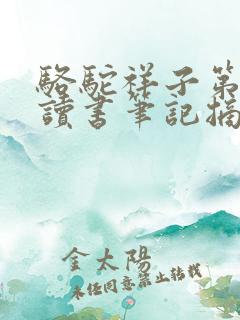 駱駝祥子第
讀書筆記摘
金太陽
未经同意禁止转载